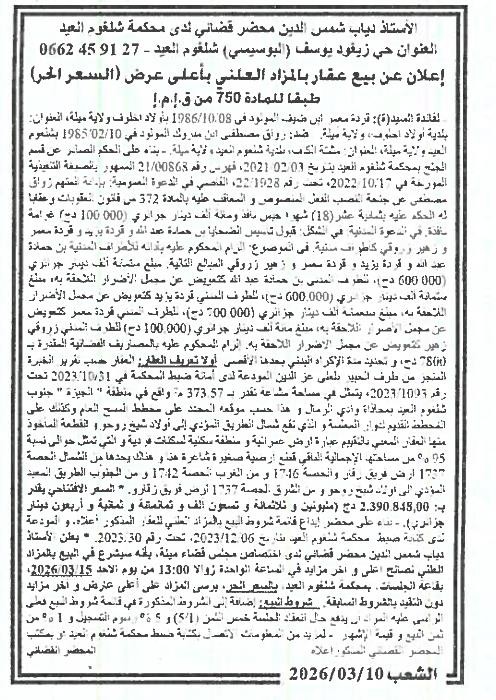 الأستاذ دياب شمس الدين محضر قضائي لدى محكمة شلغوم العيد
العنوان حي زيغود يوسف (البوسيسي) شلغوم العيد - 27 91 45 0662
إعلان عن بيع عقار بالمزاد العلني بأعلى عرض (السعر الحر)
طبقا للمادة 750 من ق.إ.م.إ
لفائدة السيد(ة): قردة معمر ابن ضيف المولود في 1986/10/08 بأولاد اخلوف ولاية ميلة، العنوان:
بلدية أولاد اخلوف، ولاية ميلة. ضد: رواق مصطفى ابن مبروك المولود في 1985/02/10 بشلغوم
العيد ولاية ميلة، العنوان: مشتة الكاف، بلدية شلغوم العيد، ولاية ميلة. - بناء على الحكم الصادر عن قسم
الجنح بمحكمة شلغوم العيد بتاريخ 2021/02/03، فهرس رقم 21/00868 الممهور بالصيغة التنفيذية
المؤرخة في 2022/10/17، تحت رقم 22/1928، القاضي في الدعوة العمومية: بإدانة المتهم زواق
مصطفى عن جنحة النصب الفعل المنصوص و المعاقب عليه بالمادة 372 من قانون العقوبات وعقابا
له الحكم عليه بثمانية عشر (18) شهرا حبس نافذ ومائة ألف دينار جزائري (100 000 دج) غرامة
نافذة، في الدعوة المدنية: في الشكل: قبول تأسيس الضحايا بن حمادة عبد الله و قردة يزيد و قردة معمر
و زهير زروقي كأطراف مدنية. في الموضوع: إلزام المحكوم عليه بأدائه للأطراف المدنية بن حمادة
عبد الله و قردة يزيد و قردة معمر و زهير زروقي المبالغ التالية: مبلغ ستمائة ألف دينار جزائري
(600 000 دج)، للطرف المدني بن حمادة عبد الله كتعويض عن مجمل الأضرار اللاحقة به، مبلغ
ستمائة ألف دينار جزائري (600.000 دج)، للطرف المدني قردة يزيد كتعويض عن مجمل الأضرار
اللاحقة به، مبلغ سبعمائة ألف دينار جزائري (700 000 دج)، للطرف المدني قردة معمر كتعويض
عن مجمل الأضرار اللاحقة به، مبلغ مائة ألف دينار جزائري (100.000 دج) للطرف المدني زروقي
زهير كتعويض عن مجمل الأضرار اللاحقة به. إلزام المحكوم عليه بالمصاريف القضائية المقدرة بـ
800 دج، و تحديد مدة الإكراه البدني بحدها الأقصى. أولا تعريف العقار: العقار حسب تقرير الخبرة
المنجز من طرف الخبير بلعلى عز الدين المودعة لدى أمانة ضبط المحكمة في 2023/10/31 تحت
رقم 2023/1093، يتمثل في مساحة مشاعة تقدر بـ 373.57 م² واقع في منطقة " الجبزة " جنوب
شلغوم العيد بمحاذاة وادي الرمال و هذا حسب موقعه المحدد على مخطط المسح العام وكذلك على
المخطط القديم لدوار المعنسة و الذي تقع شمال الطريق المؤدي إلى أولاد شيخ روحو و القطعة المأخوذ
منها العقار المعني بالتقييم عبارة أرض عمرانية و منطقة سكنية لسكنات فردية و التي تمثل حوالي نسبة
95 % من مساحتها الإجمالية الباقي قطع أرضية صغيرة شاغرة هنا و هناك يحدها من الشمال الحصة
1737 أرض فريق رقار والحصة 1746 و من الغرب الحصة 1742 و من الجنوب الطريق المعبد
المؤدي الى أولاد شيخ روحو و من الشرق الحصة 1737 أرض فريق زقارو. * السعر الافتتاحي يقدر
بـ: 2.390.848,00 دج (مليونين و ثلاثمائة و تسعون ألف و ثمانمائة و ثمانية و أربعون دينار
جزائري). - بناء على محضر إيداع قائمة شروط البيع بالمزاد العلني للعقار المذكور أعلاه، و المودعة
لدى كتابة ضبط محكمة شلغوم العيد بتاريخ 2023/12/06، تحت رقم 2023/30. * يعلن الأستاذ
دياب شمس الدين محضر قضائي لدى اختصاص مجلس قضاء ميلة، بأنه سيشرع في البيع بالمزاد
العلني لصالح أعلى و آخر مزايد في الساعة الواحدة زوالا 13:00 من يوم الأحد 2026/03/15،
بقاعة الجلسات، بمحكمة شلغوم العيد، بالسعر الحر، يرسى المزاد على أعلى عارض و آخر مزايد
دون التقيد بالشروط السابقة. شروط البيع: إضافة إلى الشروط المذكورة في قائمة شروط البيع فعلى
الراسي عليه المزاد أن يدفع حال انعقاد الجلسة خمس الثمن (5/1) و 5 % رسوم التسجيل و 1 % من
ثمن البيع و قيمة الإشهار. - لمزيد من المعلومات الاتصال بكتابة ضبط محكمة شلغوم العيد أو بمكتب
المحضر القضائي المذكور أعلاه
المحضر القضائي
الشعب 2026/03/10